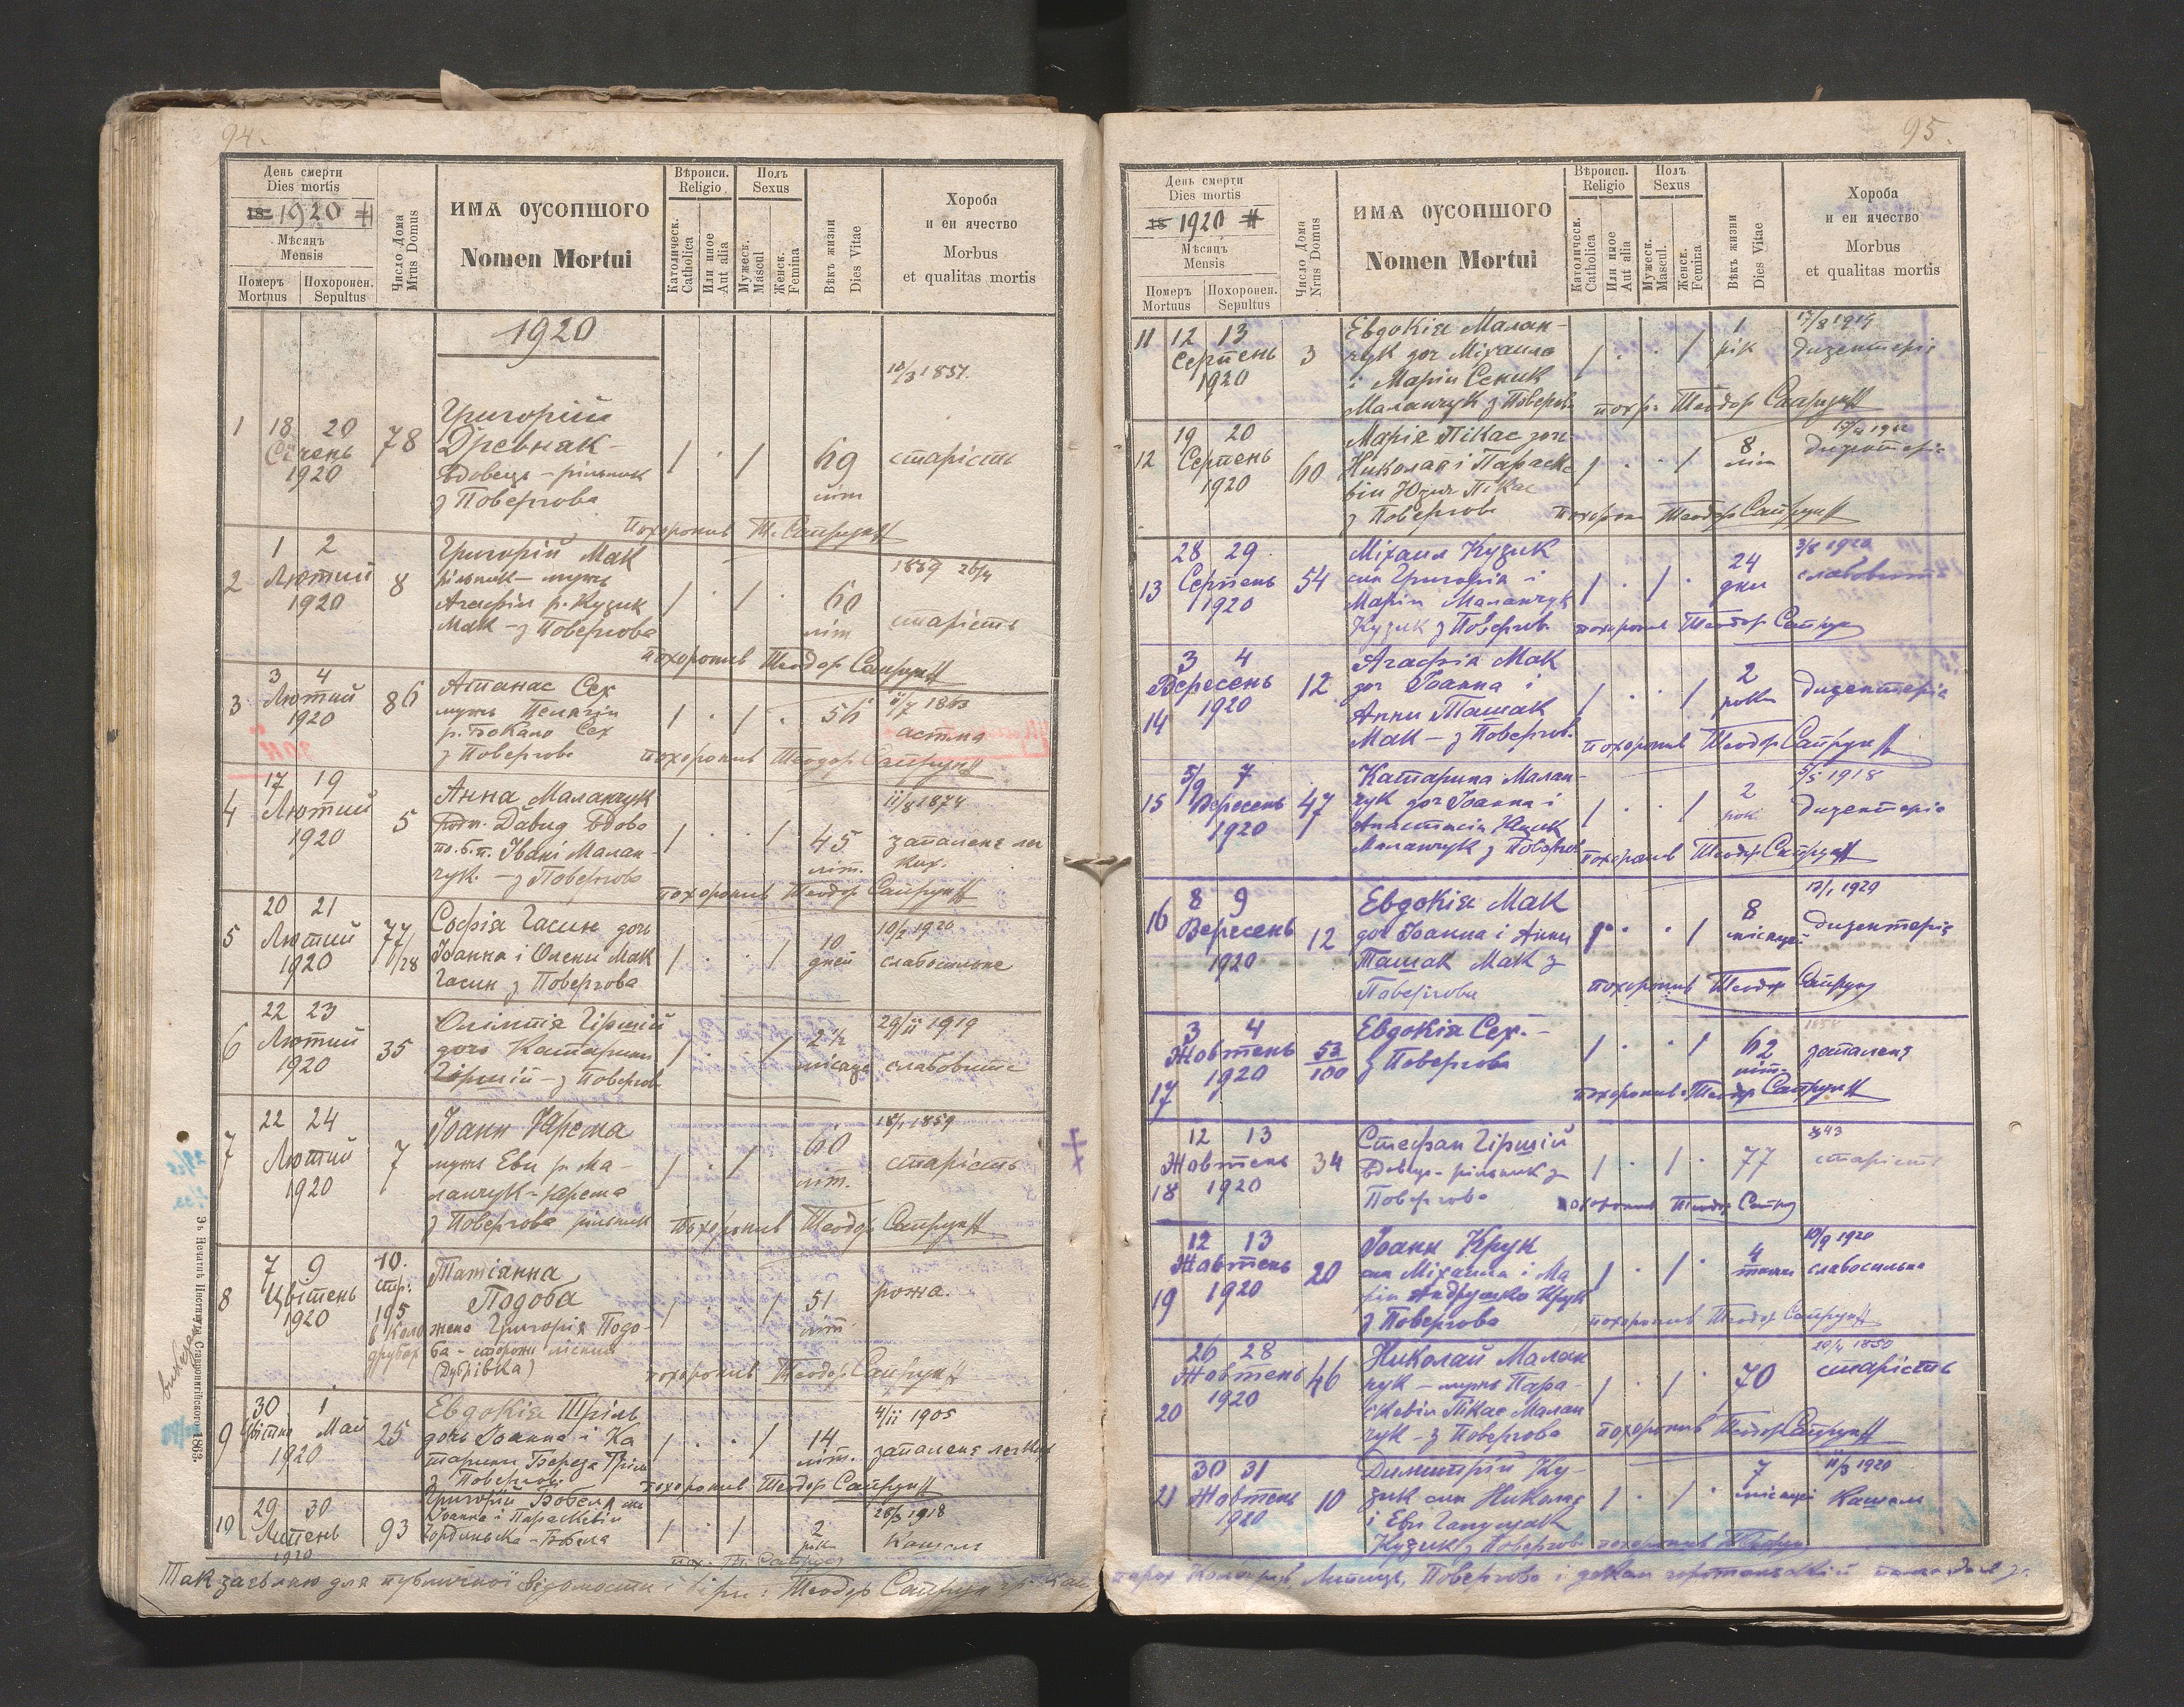 94.
День смерти
Dies mortis
18 1920
Мѣсяцъ
Mensis
Померъ
Mortuus
Похоронен.
Sepultus
Число Дома
Nrus Domus
ИМѦ ОУСОПШОГО
Nomen Mortui
Вѣроисп.
Religio
Католическ.
Catholica
Или иное
Aut alia
Полъ
Sexus
Мужеск.
Mascul
Женск.
Femina
Вѣкъ жизни
Dies Vitae
Хороба
и еи ячество
Morbus
et qualitas mortis
1920
10/3 1851.
1 18 20 Січень 1920 78
Григорій
Древняк
вдовець - рільник
з Повергова
1 · 1 69 літ старість
Похоронив Т. Сайрук
2 1 2 Лютий 1920 8
Григорій Мак
рільник - мужь
Агафіи р. Кузик
Мак - з Повергова
1 · 1 · 60 літ 1859 26/4 старість
похоронив Теодор Сайрук
3 3 4 Лютий 1920 86
Атанас Сех
мужь Пелагіи
р. Бокало Сех
з Повергова
1 · 1 · 56 11/7 1863 астма
похоронив Теодор Сайрук
4 17 19 Лютий 1920 5
Анна Маланчук
родж. Давид вдова
по б.п. Івані Малан-
чук - з Повергова
1 · · 1 45 літ. 11/8 1874 запаленя лег
ких.
похоронив Теодор Сайрук
5 20 21 Лютий 1920 77/28
Софія Гасин дочь
Іоанна і Олени Мак
Гасин з Повергова
1 · · 1 10 дней 10/2 1920 слабосильне
6 22 23 Лютий 1920 35
Олімпія Гірший
дочь Катарини
Гірший - з Повергова
1 · · 1 2½ місяця 29/11 1919 слабовите
7 22 24 Лютий 1920 7
Іоанн Ярема
мужь Еви р. Ма-
ланчук - Ярема
з Повергова рільник
1 · 1 60 літ. 18/1 1859 старість
похоронив Теодор Сайрук
8 7 9 Цвітень 1920 10. стр. 195
Татіанна
Подоба
жена Григорія Подо-
ба - сторожа
(Дубрівка)
1 · · 1 51 літ рожа.
похоронив Теодор Сайрук
9 30 1 Цвітня Май 1920 25
Евдокія Тріль
дочь Іоанна і Ка
тарини Береза Тріль
з Повергова
1 · · 1 14 літ. 4/11 1905 запаленя легких
похоронив Теодор Сайрук
10 29 30 Липень 1920 93
Григорій Бобела син
Іоанна і Параскевіи
Бобела
1 · 1 2 роки 28/3 1918 Кашель
пох. Т. Сайрук
Так заевляю для публичної відомости і віри: Теодор Сайрук гр. кат.
Зъ Печатнѣ Института Ставропигійского 1863.
95.
День смерти
Dies mortis
18 1920
Мѣсяцъ
Mensis
Померъ
Mortuus
Похоронен.
Sepultus
Число Дома
Nrus Domus
ИМѦ ОУСОПШОГО
Nomen Mortui
Вѣроисп.
Religio
Католическ.
Catholica
Или иное
Aut alia
Полъ
Sexus
Мужеск.
Mascul.
Женск.
Femina
Вѣкъ жизни
Dies Vitae
Хороба
и еи ячество
Morbus
et qualitas mortis
11 12 13 Серпень 1920 3
Евдокія Малан-
чук доч Міхаила
і Маріи Сеник
Маланчук з Повергова
1 · · 1 1 рік 17/8 1919 дизентерія
похор: Теодор Сайрук
12 19 20 Серпень 1920 60
Марія Пікас дочь
Николая і Параске
віи Пікас
з Повергова
1 · · 1 8 літ дизентерія
похорон Теодор Сайрук
13 28 29 Серпень 1920 54
Міхаил Кузик
син Григорія і
Маріи Маланчук
Кузик з Повергова
1 · 1 · 24 дни 3/8 1920 слабовите
похоронив Теодор Сайрук
14 3 4 Вересень 1920 12
Агафія Мак
доч Іоанна і
Анни Ташак
Мак - з Повергова
1 · · 1 2 роки дизентерія
похоронив Теодор Сайрук
15 5/9 7 Вересень 1920 47
Катарина Малан-
чук доч Іоанна і
Анастасіи
Маланчук з Повергова
1 · · 1 2 роки 5/5 1918 дизентерія
похоронив Теодор Сайрук
16 8 9 Вересень 1920 12
Евдокія Мак
доч Іоанна і Анни
Ташак Мак з
Повергова
1 · · 1 8 місяцей 12/1 1920 дизентерія
похоронив Теодор Сайрук
17 3 4 Жовтень 1920 53/100
Евдокія Сех. -
з Повергова
1 · · 1 62 літ. запаленя
похоронив Теодор Сайрук
18 12 13 Жовтень 1920 34
Стефан Гірший
вдовець - рільник з
Повергова
1 · 1 · 77 1843 старість
похоронив Теодор Сайрук
19 12 13 Жовтень 1920 20
Іоанн Крук
син Міхаила і Ма
ріи Андрушко Крук
з Повергова
1 · 1 · 4 10/9 1920 слабосильне
похоронив Теодор Сайрук
20 26 28 Жовтень 1920 46
Николай Малан
чук - мужь Пара-
скевіи Пікас Малан
чук - з Повергова
1 · 1 · 70 20/4 1850 старість
похоронив Теодор Сайрук
21 30 31 Жовтень 1920 10
Димитрій Ку-
зик син Николая
і Еви Галущак
Кузик з Повергова
1 · 1 · 7 місяцей 11/3 1920 Кашель
похоронив Т. Сайрук
парох Повергова і декан